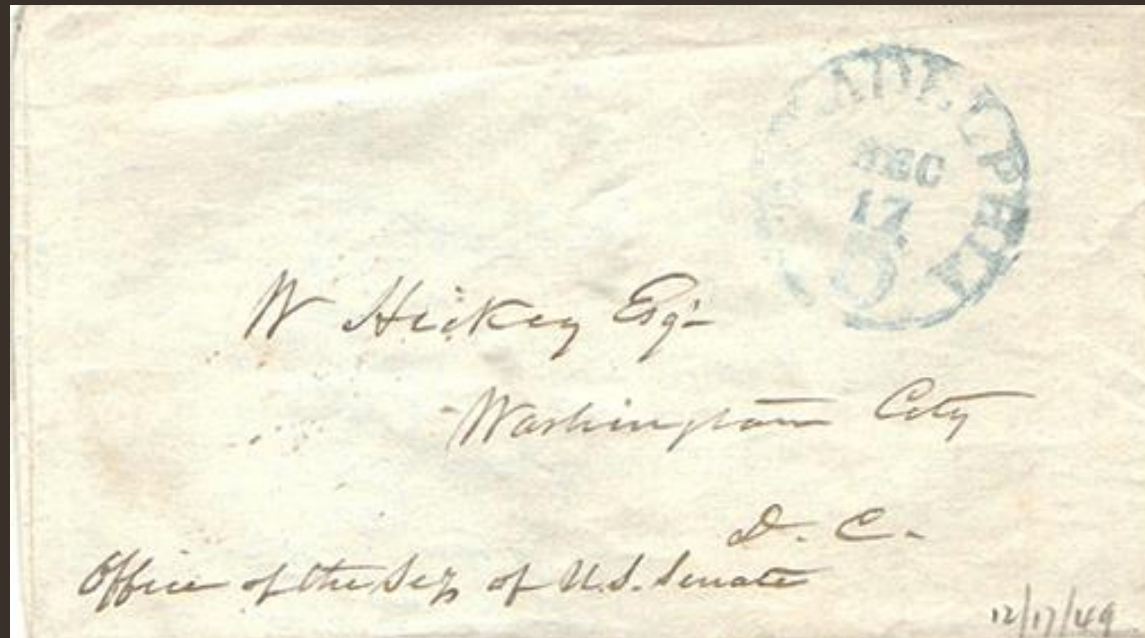 PHILADELPHIA
DEC
17
5
W Hickey Esqr
Washington City
D. C.
Office of the Secy of U.S. Senate
12/17/49